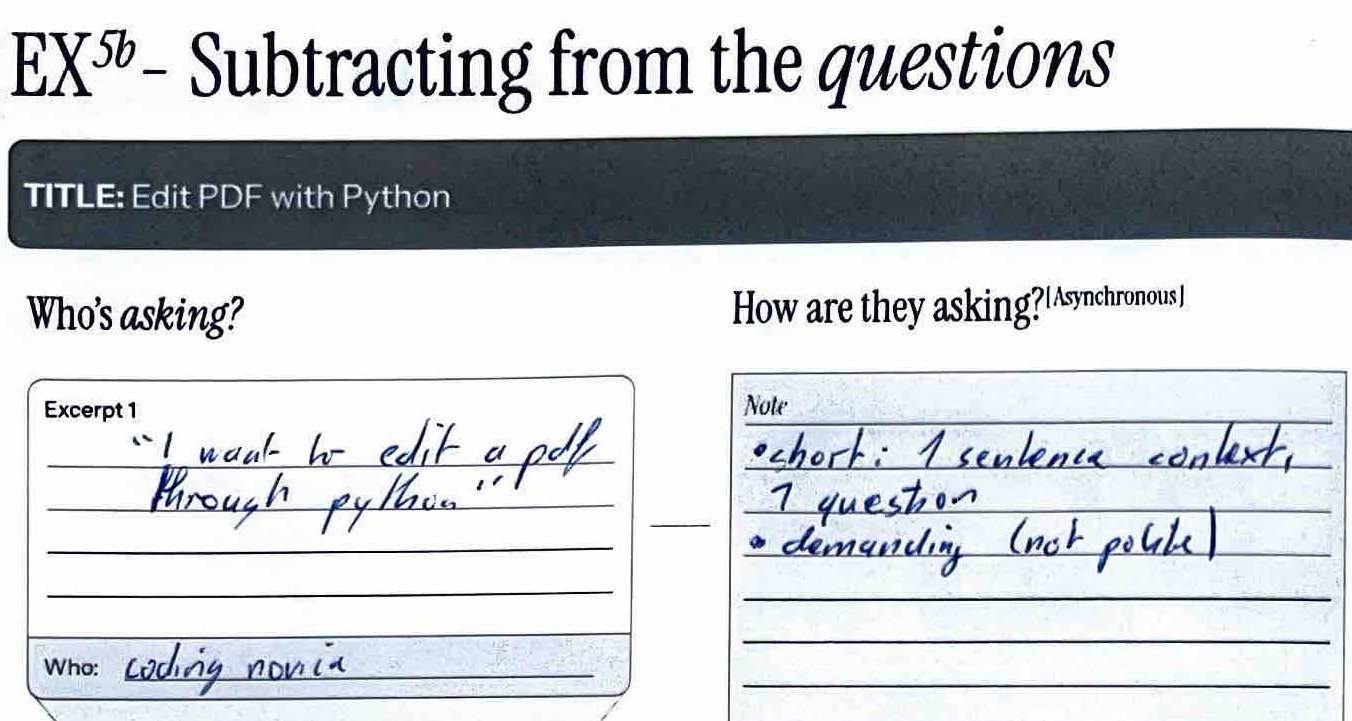 EX5b – Subtracting from the questions
TITLE: Edit PDF with Python
Who's asking?
Excerpt 1
"I want to edit a pdf
through python"
Who: coding novice
How are they asking?[Asynchronous]
Note
•short: 1 sentence context,
1 question
• demanding (not polite)